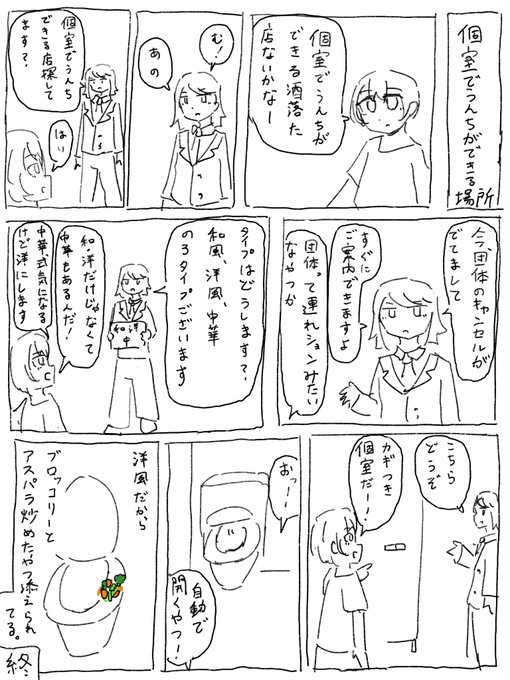 個室でうんちができる
場所
個室でうんちが
できる洒落た
店ないかなー
む!
あの
個室でうんち
できる店探して
ます?
はい
今、団体のキャンセルが
でてまして
すぐに
ご案内できますよ
団体って連れションみたい
なやつか
タイプはどうします?
和風、洋風、中華
の3タイプございます
和洋
中
和・洋だけじゃなくて
中華もあるんだ!
中華式気になる
けど洋にします
こちら
どうぞ
カギつき
個室だー!
おっ!
自動で
開くやつ!
洋風だから
ブロッコリーと
アスパラ炒めたやつ添えられ
てる。
終